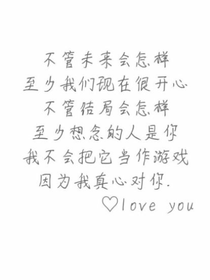 不管未来会怎样
至少我们现在很开心
不管结局会怎样
至少想念的人是你
我不会把它当作游戏
因为我真心对你.
♡love you